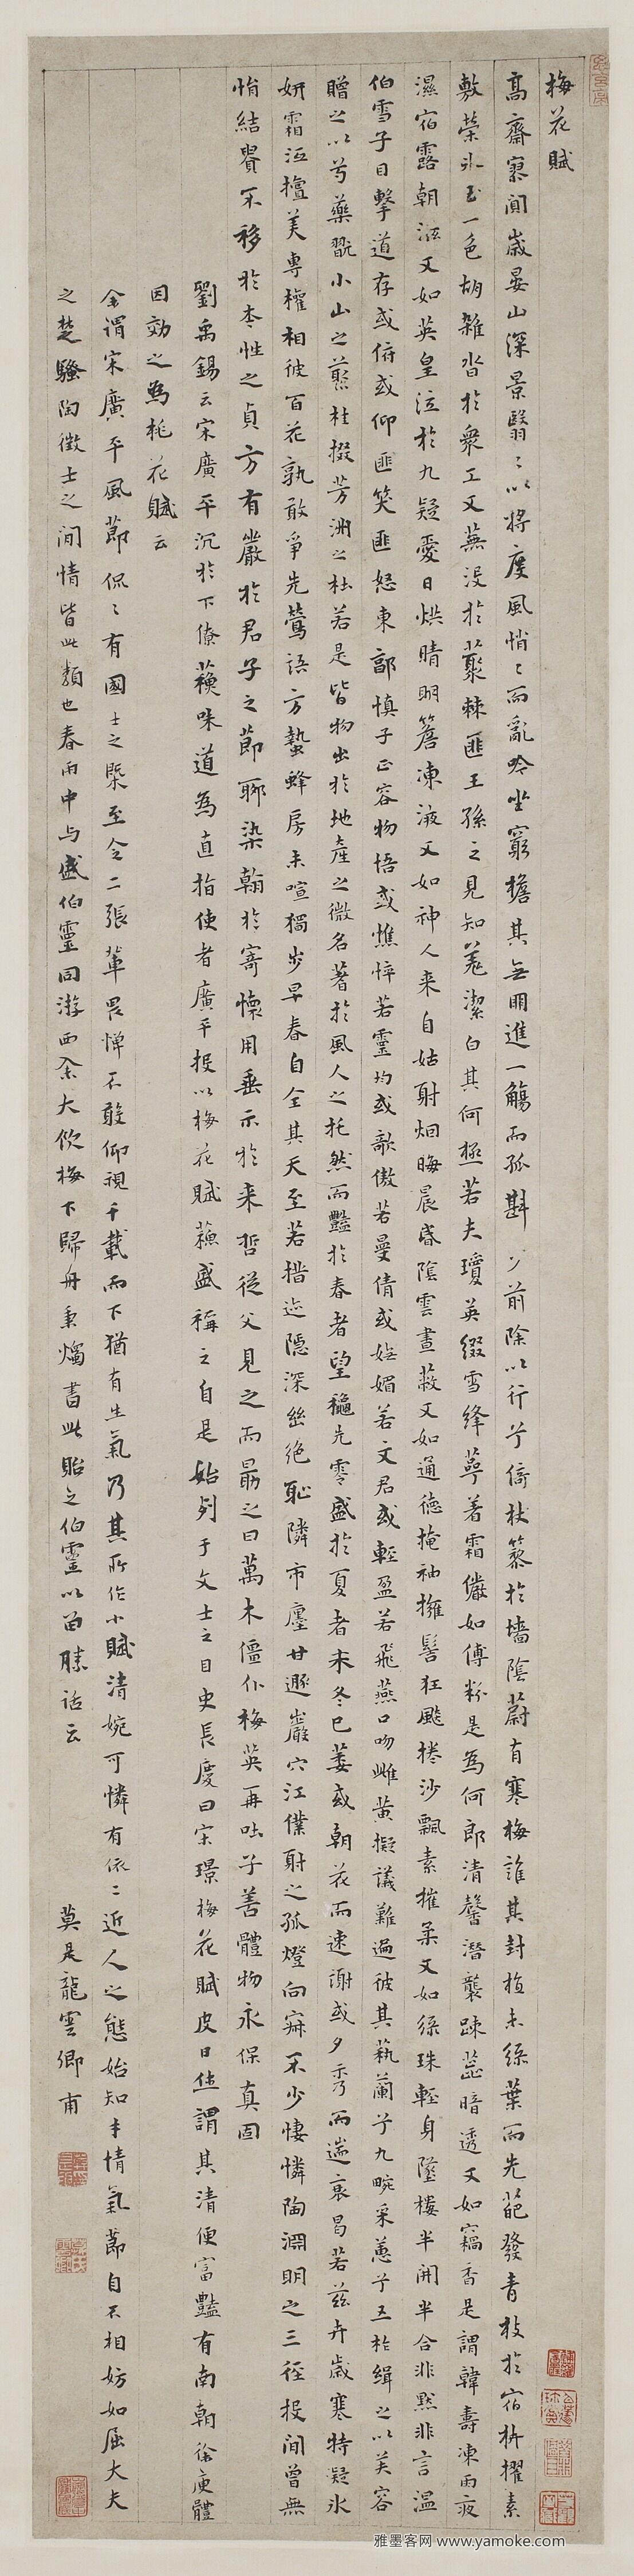 梅花賦
高齋寥闃歲晏山深景翳〻以將度風悄〻而亂吟坐窮擔其無朋進一觴而孤斟步前除以彳亍倚杖藜於墻陰蔚有寒梅誰其封植未綠葉而先葩發青枝於宿枿擢素
敷榮冰玉一色胡雜沓於衆工又蕪沒於叢棘匪王孫之見知羌潔白其何極若夫瓊英綴雪絳萼著霜儼如傅粉是為何郎清馨潛襲踈蕋暗透又如竊香是謂韓壽凍雨夜
濕宿露朝泫又如英皇泣於九疑愛日烘晴明簷凍液又如神人來自姑射烟晦晨昏陰雲晝蔽又如通德掩袖擁髻狂飈捲沙飄素摧柔又如綠珠輕身墜樓半開半合非默非言溫
伯雪子目擊道存或俯或仰匪笑匪怒東郭慎子正容物悟或憔悴若靈均或歌傲若曼倩或嫵媚若文君或輕盈若飛燕口吻雌黃擬議難遍彼其蓺蘭兮九畹采蕙兮五柞緝之以芙容
贈之以芍藥翫小山之叢桂掇芳洲之杜若是皆物出於地產之微名著於風人之托然而豔於春者望穐先零盛於夏者未冬已萎或朝花而速謝或夕秀而遄衰曷若茲卉歲寒特凝氷
妍霜沍擅美專權相彼百花孰敢爭先鶯語方蟄蜂房未喧獨步早春自全其天至若措迹隱深幽絕恥隣市廛甘遯巖穴江僕射之孤燈向寂不少悽憐陶淵明之三徑投閒曾無
悁結貴不移於本性之貞方有嚴於君子之節聊染翰於寄懷用垂示於来哲從父見之而勗之曰萬木僵仆梅英再吐子善體物永保真固
劉禹錫云宋廣平沉於下僚蘓味道為直指使者廣平投以梅花賦蘓盛稱之自是始列于文士之目史長慶曰宋璟梅花賦皮日休謂其清便富豔有南朝徐庾體
因効之為桃花賦云
余謂宋廣平風節侃〻有國士之槩至令二張輩畏憚不敢仰視千載而下猶有生氣乃其所作小賦清婉可憐有依〻近人之態始知本情氣節自不相妨如屈大夫
之楚騷陶徵士之閒情皆此類也春雨中与盛伯靈同游西佘大飲梅下歸舟秉燭書此貽之伯靈以留勝話云
莫是龍雲卿甫
雅墨客网 www.yamoke.com